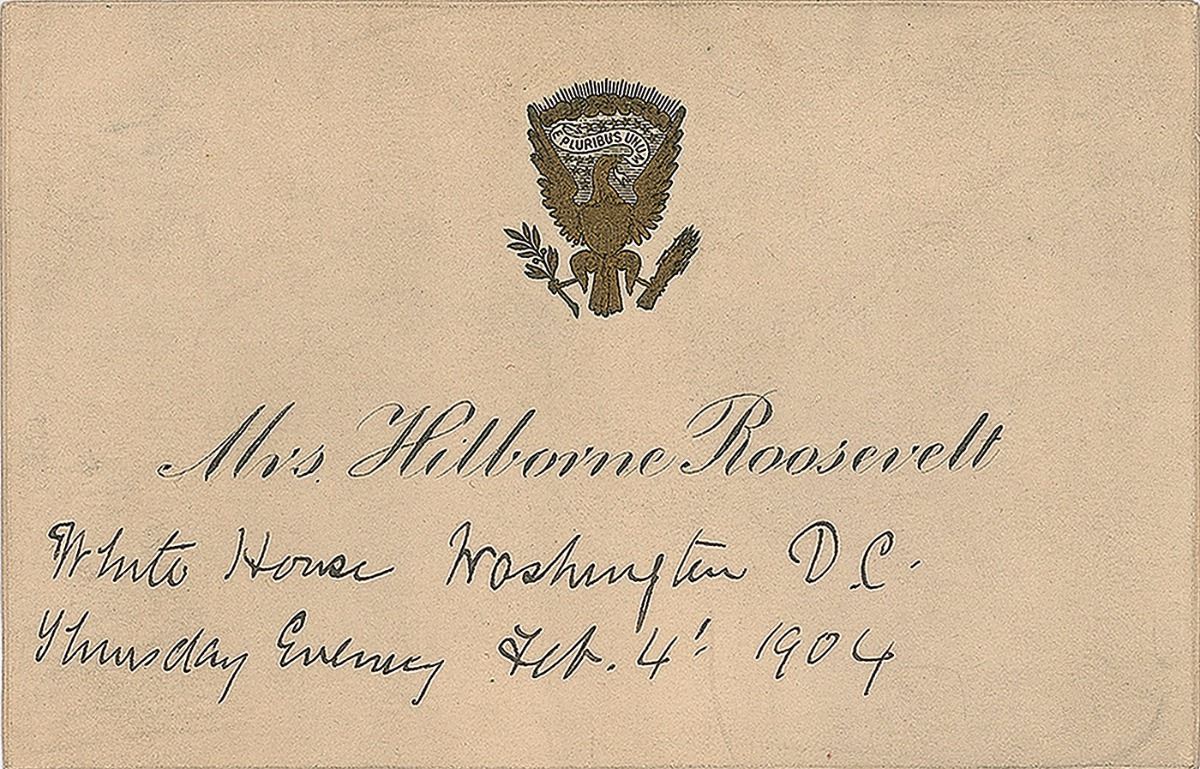 E PLURIBUS UNUM
Mrs. Hilborne Roosevelt
White House Washington D.C.
Thursday Evening Feb. 4' 1904